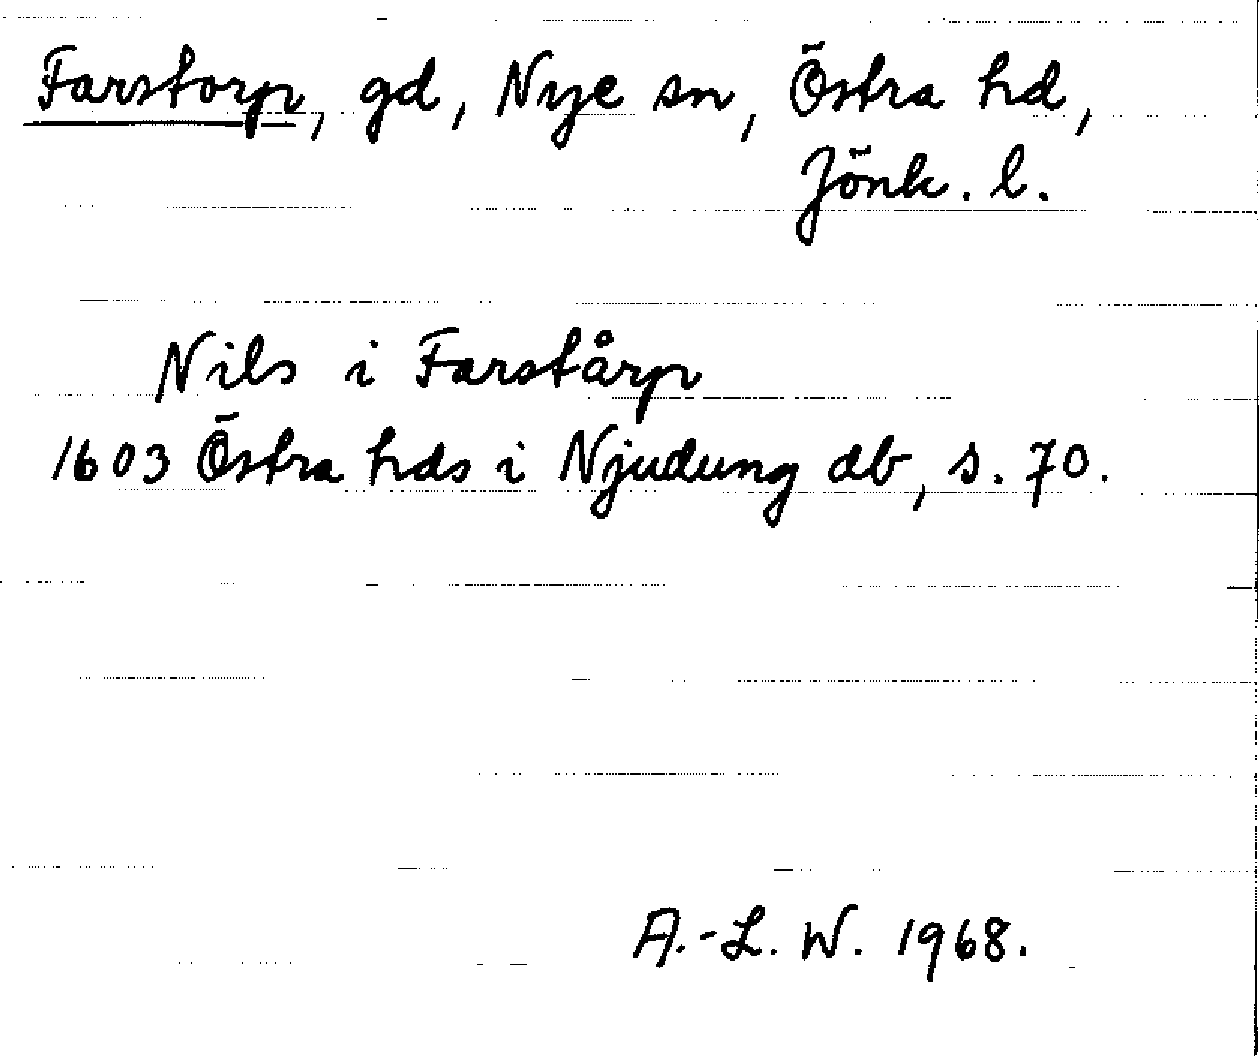 Farstorp, gd, Nye sn, Östra hd,
Jönk. l.
Nils i Farstårp
1603 Östra hds i Njudung db, s. 70.
A.-L. W. 1968.